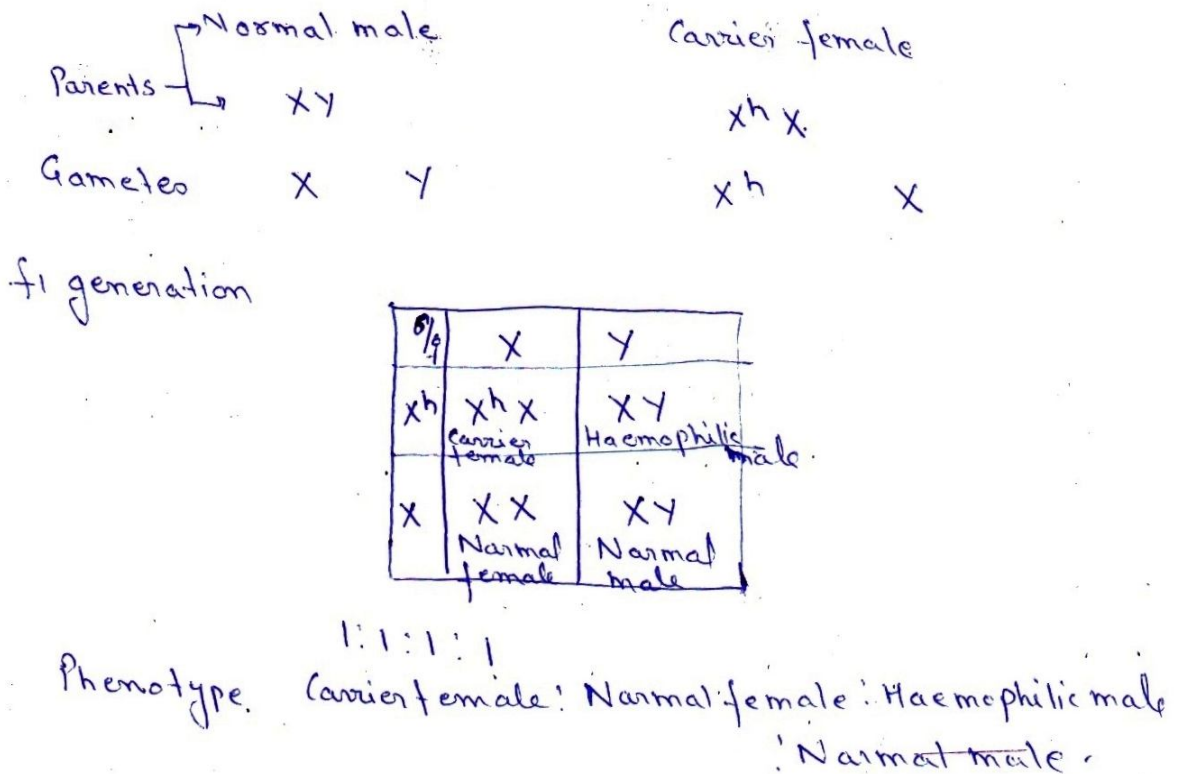 Normal male Carrier female
Parents XY X^h X
Gametes X Y X^h X
f1 generation
♂/♀ X Y
X^h X^h X XY
Carrier female Haemophilic male.
X XX XY
Narmal female Narmal male
1:1:1:1
Phenotype. Carrier female: Narmal female: Haemophilic male
: Narmal male.